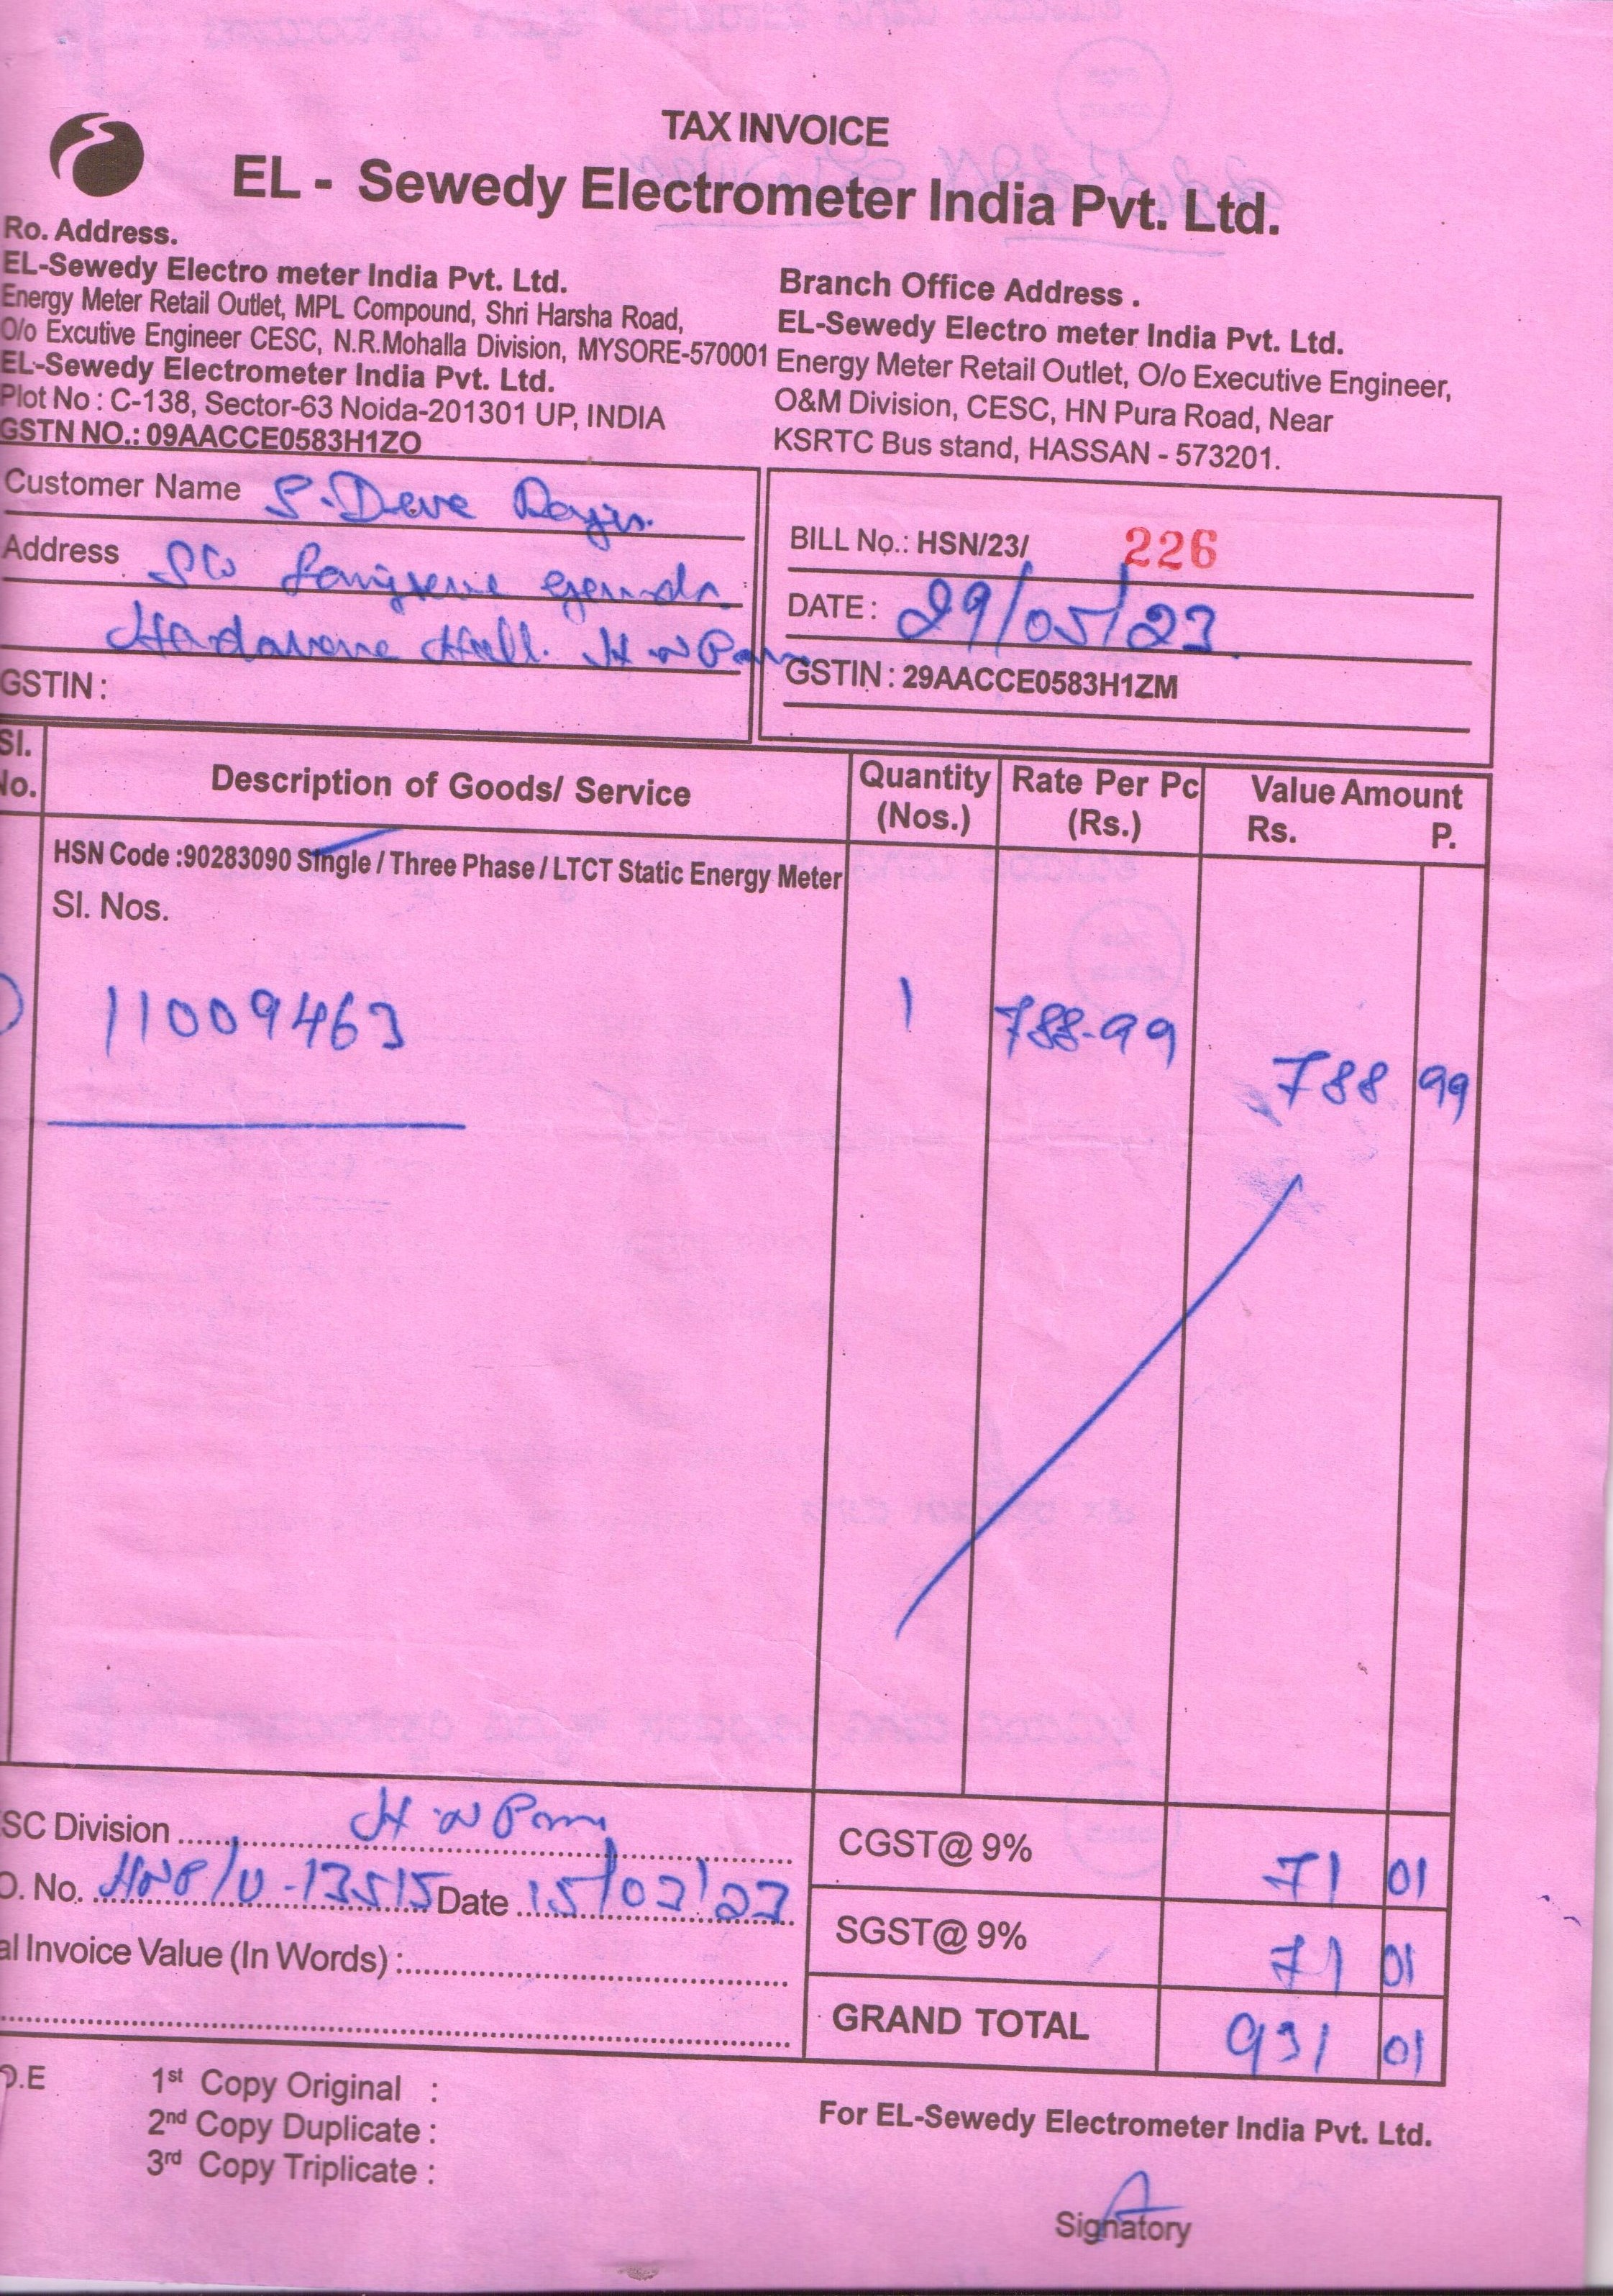 TAX INVOICE
EL - Sewedy Electrometer India Pvt. Ltd.
Ro. Address.
EL-Sewedy Electro meter India Pvt. Ltd.
Energy Meter Retail Outlet, MPL Compound, Shri Harsha Road,
O/o Excutive Engineer CESC, N.R.Mohalla Division, MYSORE-570001
EL-Sewedy Electrometer India Pvt. Ltd.
Plot No : C-138, Sector-63 Noida-201301 UP, INDIA
GSTN NO.: 09AACCE0583H1ZO
Branch Office Address .
EL-Sewedy Electro meter India Pvt. Ltd.
Energy Meter Retail Outlet, O/o Executive Engineer,
O&M Division, CESC, HN Pura Road, Near
KSRTC Bus stand, HASSAN - 573201.
Customer Name S. Deve
Address
H N
GSTIN :
BILL No.: HSN/23/ 226
DATE : 29/05/23
GSTIN : 29AACCE0583H1ZM
Sl. No. Description of Goods/ Service Quantity (Nos.) Rate Per Pc (Rs.) Value Amount Rs. P.
HSN Code :90283090 Single / Three Phase / LTCT Static Energy Meter
Sl. Nos.
11009463 1 788-99 788 99
SC Division H N
O. No. HNP/ Date 15/03/23
al Invoice Value (In Words) :
CGST@ 9% 71 01
SGST@ 9% 71 01
GRAND TOTAL 931 01
O.E
1st Copy Original :
2nd Copy Duplicate :
3rd Copy Triplicate :
For EL-Sewedy Electrometer India Pvt. Ltd.
Signatory